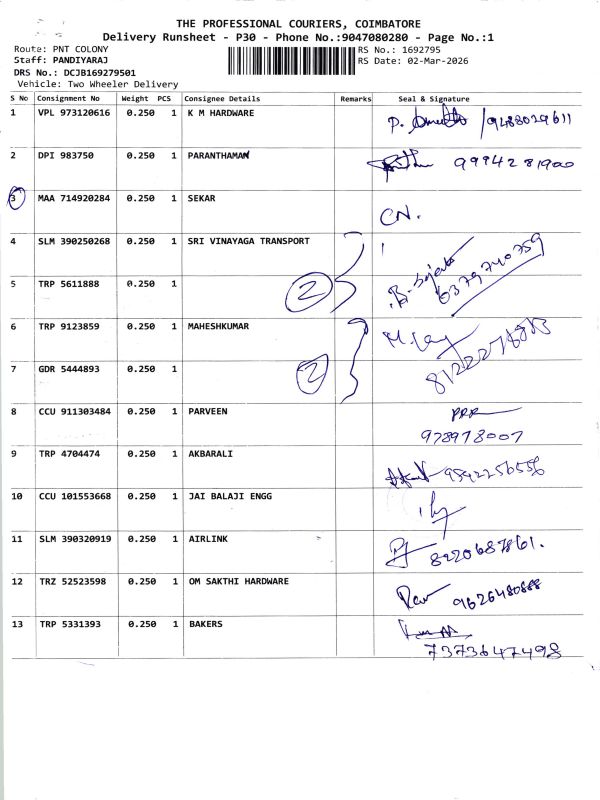 THE PROFESSIONAL COURIERS, COIMBATORE
Delivery Runsheet - P30 - Phone No.:9047080280 - Page No.:1
Route: PNT COLONY
RS No.: 1692795
Staff: PANDIYARAJ
RS Date: 02-Mar-2026
DRS No.: DCJB169279501
Vehicle: Two Wheeler Delivery
S No Consignment No Weight PCS Consignee Details Remarks Seal & Signature
1 VPL 973120616 0.250 1 K M HARDWARE P. /9488029611
2 DPI 983750 0.250 1 PARANTHAMAN 9994281900
3 MAA 714920284 0.250 1 SEKAR CN.
4 SLM 390250268 0.250 1 SRI VINAYAGA TRANSPORT
5 TRP 5611888 0.250 1 2 6379740759
6 TRP 9123859 0.250 1 MAHESHKUMAR
7 GDR 5444893 0.250 1 2
8 CCU 911303484 0.250 1 PARVEEN
978978007
9 TRP 4704474 0.250 1 AKBARALI
10 CCU 101553668 0.250 1 JAI BALAJI ENGG
11 SLM 390320919 0.250 1 AIRLINK 8220687861.
12 TRZ 52523598 0.250 1 OM SAKTHI HARDWARE 9626480888
13 TRP 5331393 0.250 1 BAKERS
7373647498